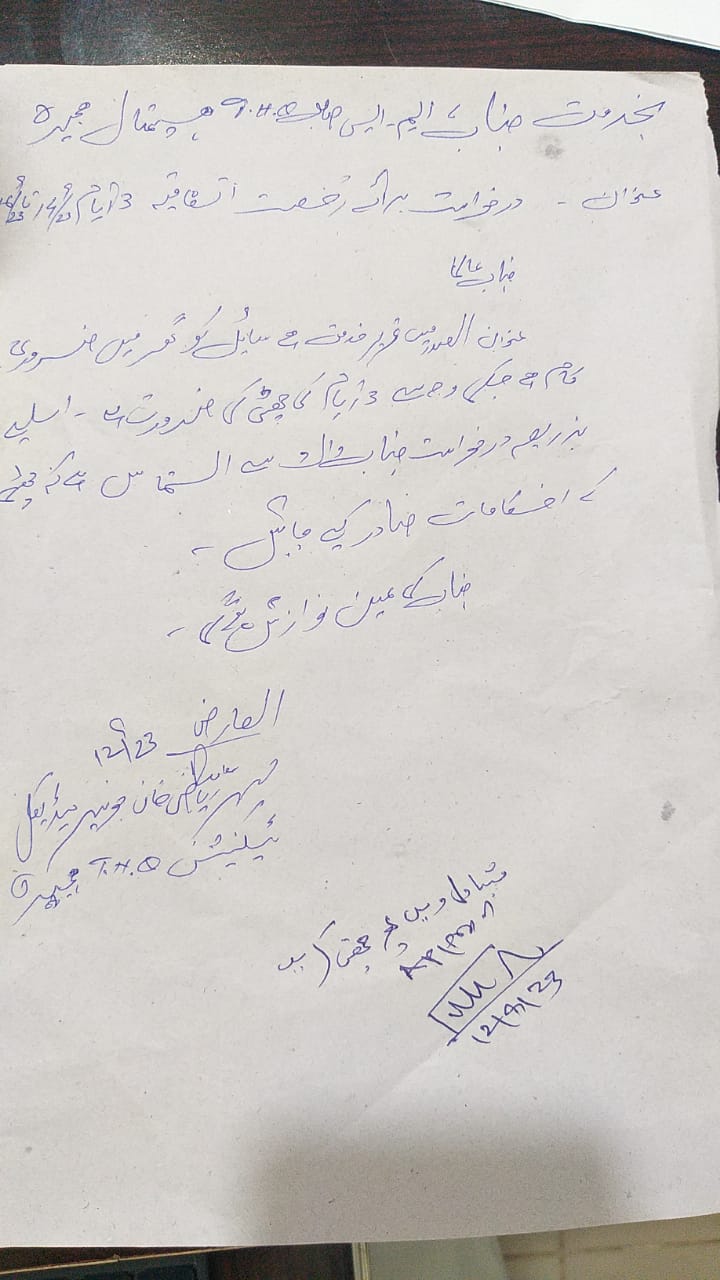 بخدمت جناب ایم۔ایس صاحب T.H.Q ہسپتال ہجیرہ
عنوان ۔ درخواست برائے رخصت اتفاقیہ 3 ایام 14/9/23 تا
جناب عالی!
عنوان الصدر میں تحریر خدمت ہے سائل کو گھر میں ضروری
کام ہے جسکی وجہ سے 3 ایام کی چھٹی کی ضرورت ہے ۔ اسلیے
بذریعہ درخواست جناب والا سے التماس ہے کہ چھٹی
کے احکامات صادر کیے جائیں ۔
جناب کی عین نوازش ہو گی ۔
العارض 12/9/23
ریاض خان جونیئر میڈیکل
ٹیکنیشن T.H.Q ہجیرہ
متبادل دیں پھر چھٹی کریں
12/9/23